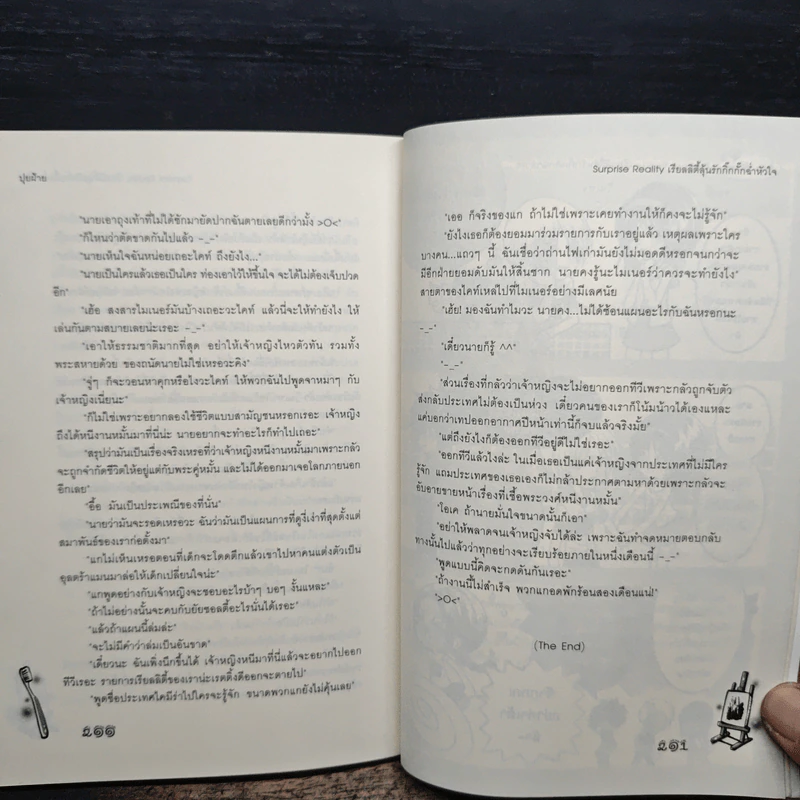 ปุยฝ้าย
"นายเอาถุงเท้าที่ไม่ได้ซักมายัดปากฉันตายเลยดีกว่ามั้ง >O<"
"ก็ไหนว่าตัดขาดกันไปแล้ว -_-"
"นายเห็นใจฉันหน่อยเถอะไคท์ ถึงยังไง..."
"นายเป็นใครแล้วเธอเป็นใคร ท่องเอาไว้ให้ขึ้นใจ จะได้ไม่ต้องเจ็บปวด
อีก"
"เฮ้อ สงสารไมเนอร์มันบ้างเถอะวะไคท์ แล้วนี่จะให้ทำยังไง ให้
เล่นกันตามสบายเลยน่ะเรอะ -_-"
"เอาให้ธรรมชาติมากที่สุด อย่าให้เจ้าหญิงไหวตัวทัน รวมทั้ง
พระสหายด้วย ของถนัดนายไม่ใช่เหรอวะคิง"
"จู่ๆ ก็จะวอนหาคุกหรือไงวะไคท์ ให้พวกฉันไปพูดจาหมาๆ กับ
เจ้าหญิงเนี่ยนะ"
"ก็ไม่ใช่เพราะอยากลองใช้ชีวิตแบบสามัญชนหรอกเรอะ เจ้าหญิง
ถึงได้หนีงานหมั้นมาที่นี่น่ะ นายอยากจะทำอะไรก็ทำไปเถอะ"
"สรุปว่ามันเป็นเรื่องจริงเหรอที่ว่าเจ้าหญิงหนีงานหมั้นมาเพราะกลัว
จะถูกจำกัดชีวิตให้อยู่แต่กับพระคู่หมั้น และไม่ได้ออกมาเจอโลกภายนอก
อีกเลย"
"อื้อ มันเป็นประเพณีของที่นั่น"
"นายว่ามันจะรอดเหรอวะ ฉันว่ามันเป็นแผนการที่ดูงี่เง่าที่สุดตั้งแต่
สมาพันธ์ของเราก่อตั้งมา"
"แกไม่เห็นเหรอตอนที่เด็กจะโดดตึกแล้วเขาไปหาคนแต่งตัวเป็น
อุลตร้าแมนมาล่อให้เด็กเปลี่ยนใจน่ะ"
"แกพูดอย่างกับเจ้าหญิงจะชอบอะไรบ้าๆ บอๆ งั้นแหละ"
"ถ้าไม่อย่างนั้นจะคบกับยัยซอลดี้อะไรนั่นได้เรอะ"
"แล้วถ้าแผนนี้ล่มล่ะ"
"จะไม่มีคำว่าล่มเป็นอันขาด"
"เดี๋ยวนะ ฉันเพิ่งนึกขึ้นได้ เจ้าหญิงหนีมาที่นี่แล้วจะอยากไปออก
ทีวีเรอะ รายการเรียลลิตี้ของเราน่ะเรตติ้งดีออกจะตายไป"
"พูดชื่อประเทศโคมีร่าไปใครจะรู้จัก ขนาดพวกแกยังไม่คุ้นเลย"
๒๑๐
Surprise Reality เรียลลิตี้ลุ้นรักกิ๊กกั๊กฉ่ำหัวใจ
"เออ ก็จริงของแก ถ้าไม่ใช่เพราะเคยทำงานให้ก็คงจะไม่รู้จัก"
"ยังไงเธอก็ต้องยอมมาร่วมรายการกับเราอยู่แล้ว เหตุผลเพราะใคร
บางคน...แถวๆ นี้ ฉันเชื่อว่าถ่านไฟเก่ามันยังไม่มอดดีหรอกจนกว่าจะ
มีอีกฝ่ายยอมดับมันให้สิ้นซาก นายคงรู้นะไมเนอร์ว่าควรจะทำยังไง"
สายตาของไคท์เหล่ไปที่ไมเนอร์อย่างมีเลศนัย
"เฮ้ย! มองฉันทำไมวะ นายคง...ไม่ได้ซ้อนแผนอะไรกับฉันหรอกนะ
-_-"
"เดี๋ยวนายก็รู้ ^^"
"-_-"
"ส่วนเรื่องที่กลัวว่าเจ้าหญิงจะไม่อยากออกทีวีเพราะกลัวถูกจับตัว
ส่งกลับประเทศไม่ต้องเป็นห่วง เดี๋ยวคนของเราก็โน้มน้าวได้เองแหละ
แค่บอกว่าเทปออกอากาศปีหน้าเท่านี้ก็จบแล้วจริงมั้ย"
"แต่ถึงยังไงก็ต้องออกทีวีอยู่ดีไม่ใช่เรอะ"
"ออกทีวีแล้วไงล่ะ ในเมื่อเธอเป็นแค่เจ้าหญิงจากประเทศที่ไม่มีใคร
รู้จัก แถมประเทศของเธอเองก็ไม่กล้าประกาศตามหาด้วยเพราะกลัวจะ
อับอายขายหน้าเรื่องที่เชื้อพระวงศ์หนีงานหมั้น"
"โอเค ถ้านายมั่นใจขนาดนั้นก็เอา"
"อย่าให้พลาดจนเจ้าหญิงจับได้ล่ะ เพราะฉันทำจดหมายตอบกลับ
ทางนั้นไปแล้วว่าทุกอย่างจะเรียบร้อยภายในหนึ่งเดือนนี้ -_-"
"พูดแบบนี้คิดจะกดดันกันเรอะ"
"ถ้างานนี้ไม่สำเร็จ พวกแกอดพักร้อนสองเดือนแน่!"
">O<"
(The End)
๒๑๑